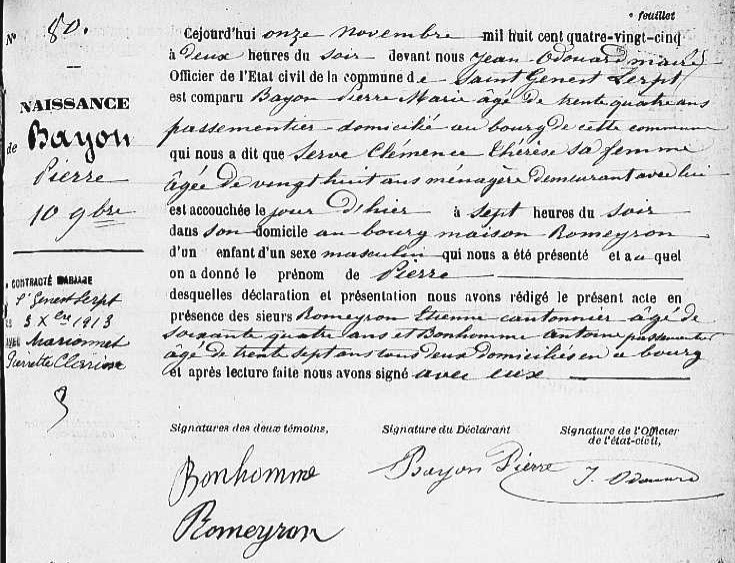 feuillet
N° 80.
NAISSANCE
de Bayon
Pierre
10 9bre
A CONTRACTÉ MARIAGE
à St Genest Lerpt
LE 3 Xbre 1913
AVEC Marionnet
Pierrette Clarisse
Cejourd'hui onze novembre mil huit cent quatre-vingt-cinq
à deux heures du soir devant nous Jean Odouard maire
Officier de l'Etat civil de la commune de Saint Genest Lerpt
est comparu Bayon Pierre Marie âgé de trente quatre ans
passementier domicilié au bourg de cette commune
qui nous a dit que Serve Clémence Thérèse sa femme
âgée de vingt huit ans ménagère demeurant avec lui
est accouchée le jour d'hier à sept heures du soir
dans son domicile au bourg maison Romeyron
d'un enfant d'un sexe masculin qui nous a été présenté et au quel
on a donné le prénom de Pierre
desquelles déclaration et présentation nous avons rédigé le présent acte en
présence des sieurs Romeyron Etienne cantonnier âgé de
soixante quatre ans et Bonhomme Antoine passementier
âgé de trente sept ans tous deux domiciliés en ce bourg
et après lecture faite nous avons signé avec eux
Signatures des deux témoins,
Signature du Déclarant
Signature de l'Officier
de l'état-civil,
Bonhomme
Romeyron
Bayon Pierre
J. Odouard